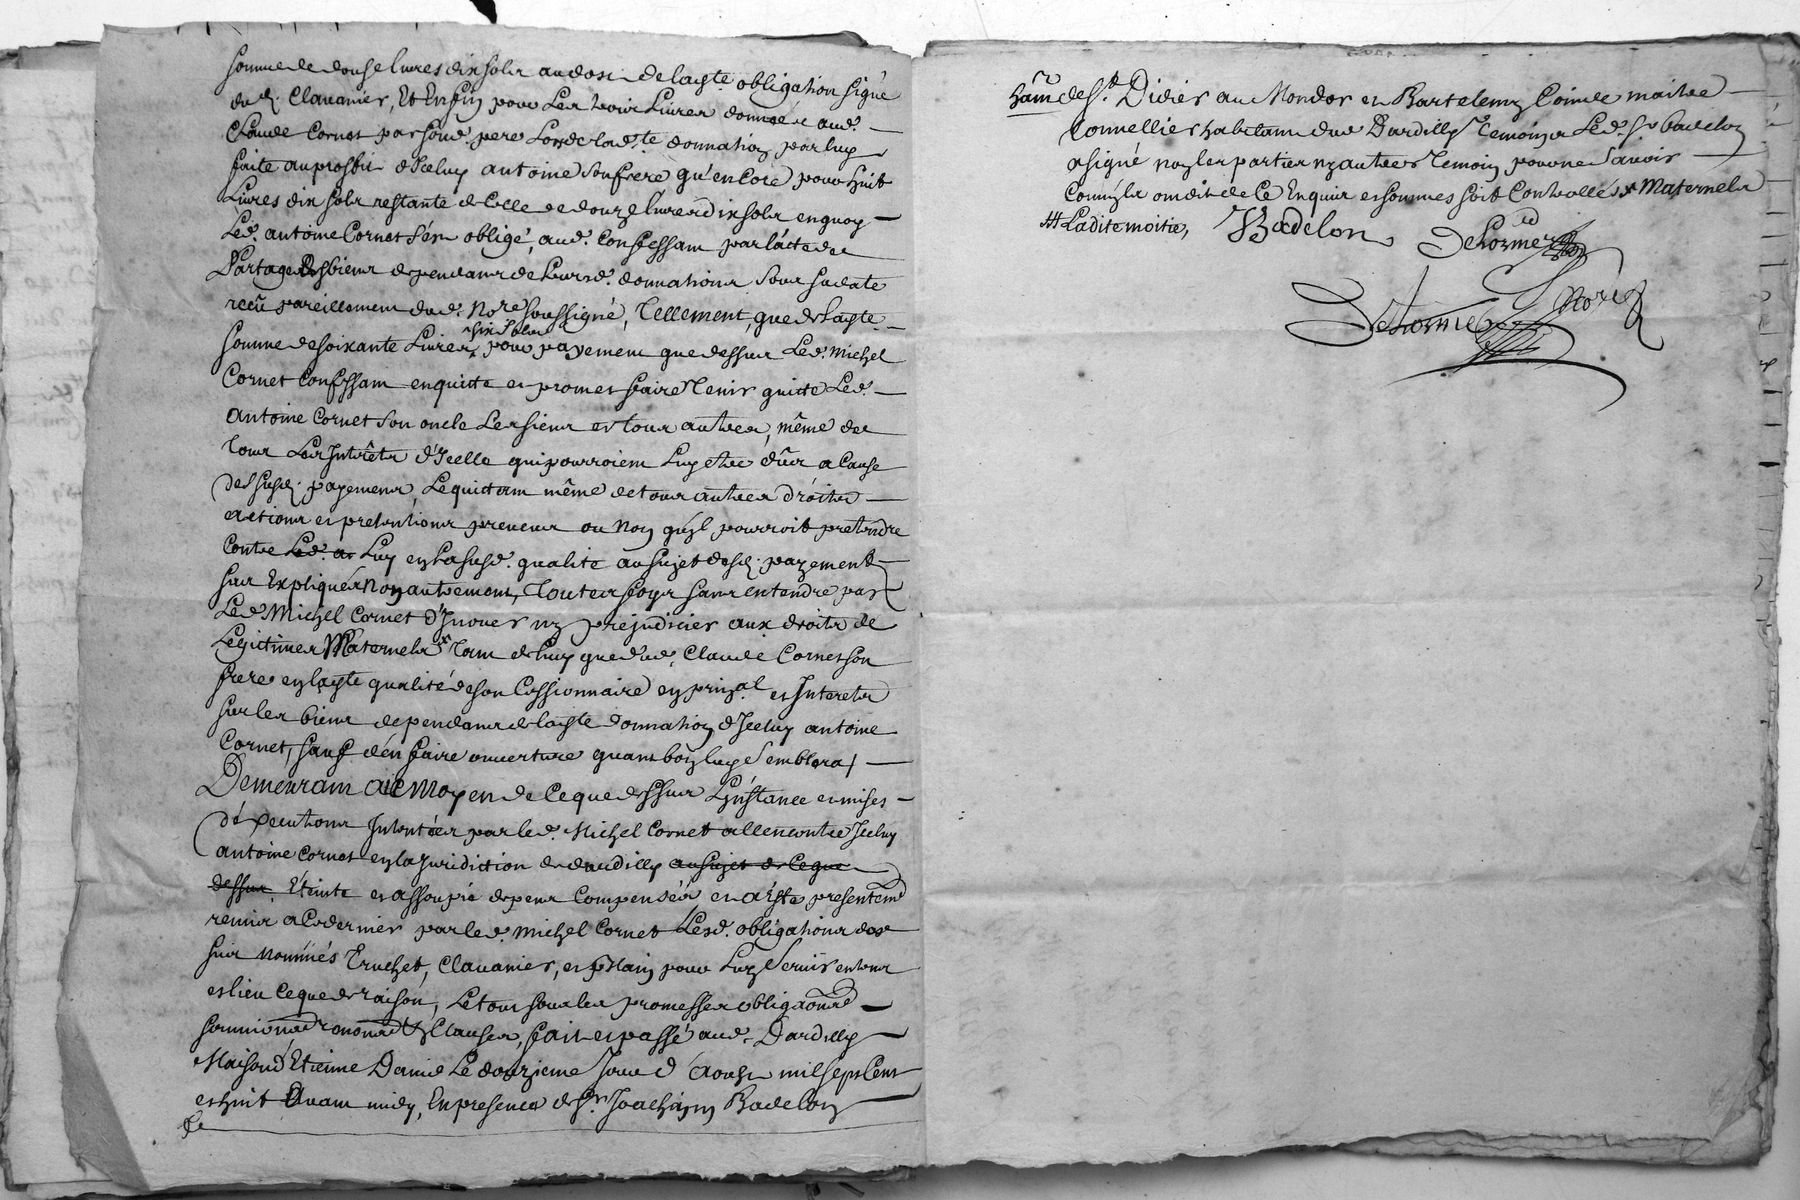 somme de douze livres dix sols au dos de laditte obligation signé
dud. Clavanier, Et Enfin pour les avoir Livres donnée aud.
Claude Cornet par sond. pere Lors de lad.te donnation par luy
faite au proffit d'Iceluy antoine son frere qu'encore pour huit
Livres dix sols restante de Celle de douze livres dix sols en quoy
Led. antoine Cornet s'est obligé, aud. Confessant par l'acte de
Partage des biens dependants de leursd. donnations sous sa date
reçû pareillement dud. No.re soussigné, Tellement, que de lad.te
somme de soixante Livres six sols pour payement que dessus Led. Michel
Cornet Confessant en quitte et promet faire Tenir quitte Led.
Antoine Cornet son oncle Les siens et tous autres, même de
Tous Les Intrêts d'Icelle qui pourroient Luy etre dûs a Cause
des susd. payements, Lequittant même de tous autres droits
actions et pretentions prevenus ou Non qu'il pourroit pretendre
Contre Led. a Luy en sa susd. qualité au sujet desd. payements
sus Expliqués Non autrement, Toutes foys sans entendre par
Led Michel Cornet d'Inover ny prejudicier aux droits de
Legitimes Maternels Tant de luy que dud. Claude Cornet son
frere en lad.te qualité de son Cessionnaire en prin.al et Interets
sur les biens dependants de lad.te donnation d'Iceluy antoine
Cornet, sauf d'en faire ouverture quant bon luy semblera /
Demeurant au Moyen de Ce que dessus L'instance et mises
d'executions Intentées par led. Michel Cornet allencontre Iceluy
antoine Cornet en la Juridiction de dardilly au sujet de Ce que
dessus Eteinte et assoupie depens Compensés et a esté presentem.t
remis a Ce dernier par led. Michel Cornet Lesd. obligations des
sus nommés Truchet, Clavanier, et plain pour Luy servir en tous
et lieu Ce que de raison, Le tout sous les promesses obligaõns
soumiõns renonaõns & Clauses, fait et passé aud. Dardilly
Maison d'Etienne Danié Le douzieme Jour d'Aoust mil sept Cent
et huit Avant midy, En presence de s.r Joachim Badelon
de
ham de S.t Didier au Mondor et Bartelemy Coinde maitre
Tonnellier habitant dud Dardilly Temoins Led. s.r Badelon
a signé non les parties ny autre Temoin pour ne savoir
Comme ils ont dit de Ce Enquis et sommes soit Controllé x Maternels
# Ladite moitie, Badelon Delorme
Delorme No.re